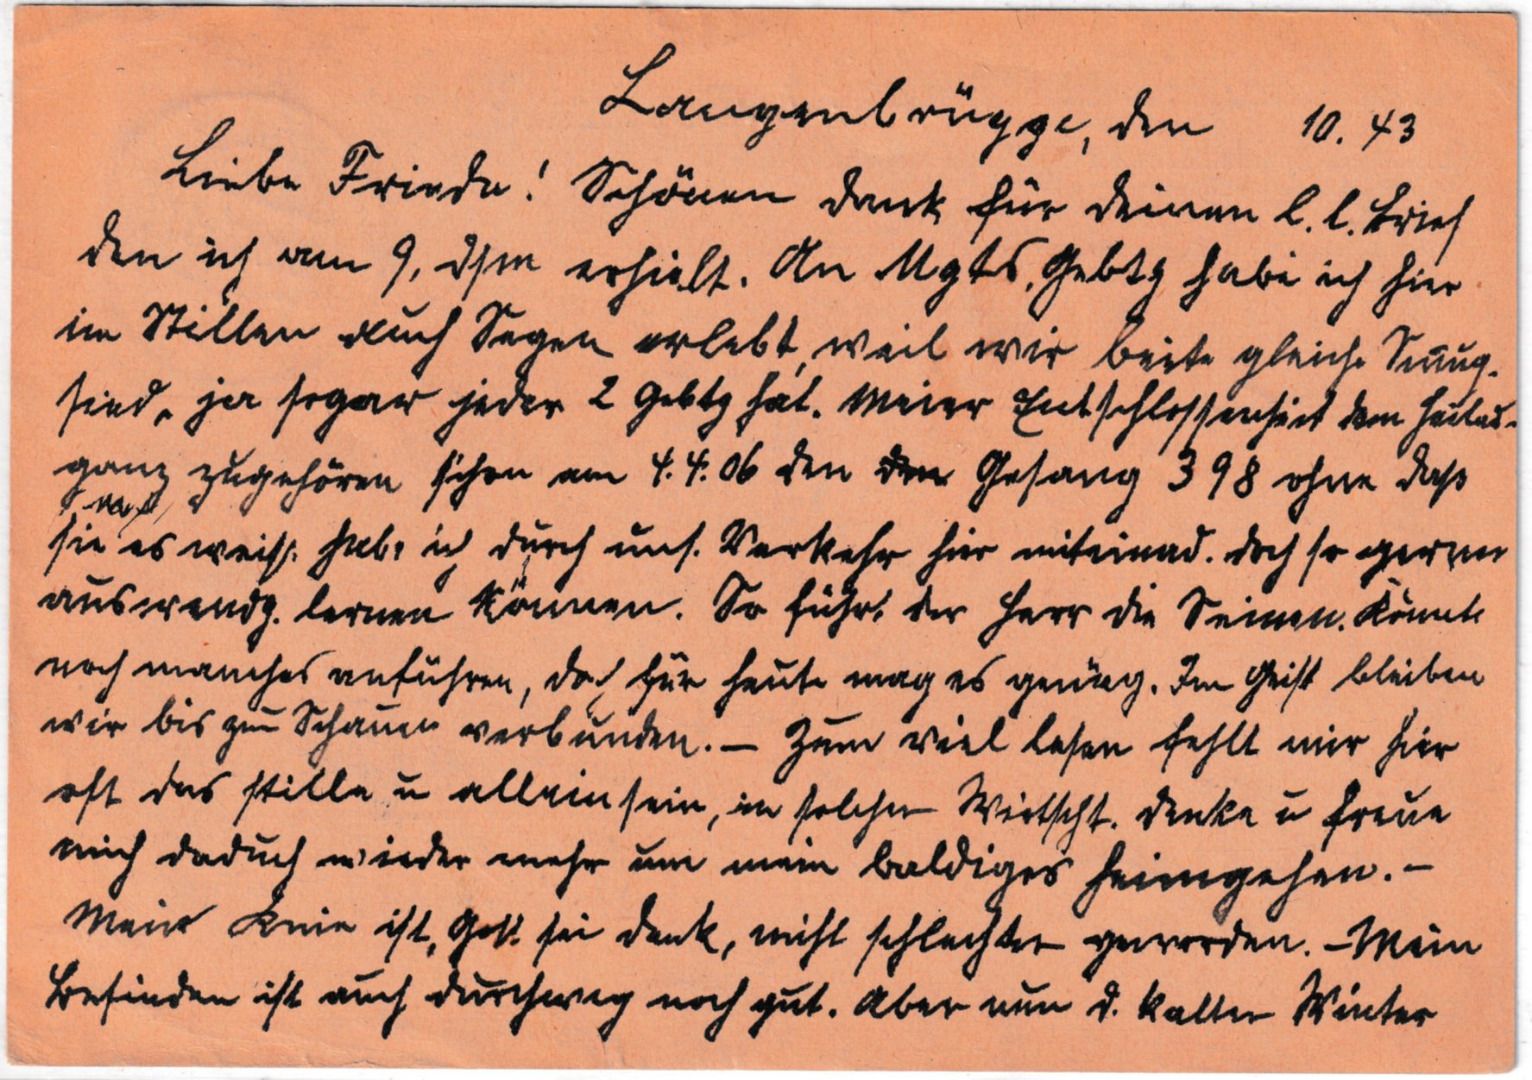 Langenbrügge, den 10. 43
Liebe Frieda! Schönen dank für deinen l. l. Brief
den ich am 9. dsm erhielt. An Mgts. Gebtg habe ich hier
im Stillen auch Segen erlebt, weil wir beite gleiche
sind, ja sogar jeder 2 Gebtg hat. Meier Entschlossenheit dem
ganz zugehören schon am 4.4.06 den Gesang 398 ohne daß
sie es weiß. habe ich durch uns. Verkehr hier miteinad. doch so gerne
auswendg. lernen können. So führt der Herr die Seinen. Könnte
noch manches anführen, doch für heute mag es genüg. Im Geist bleiben
wir bis zum Schauen verbunden. — Zum viel lesen fehlt mir hier
oft das stille u alleinsein, in solcher Wirtscht. denke u freue
mich daduch wieder mehr um mein baldiges heimgehen. —
Mein Knie ist, Gott sei dank, nicht schlechter geworden. — Mein
Befinden ist auch durchweg noch gut. Aber nun d. kalter Winter